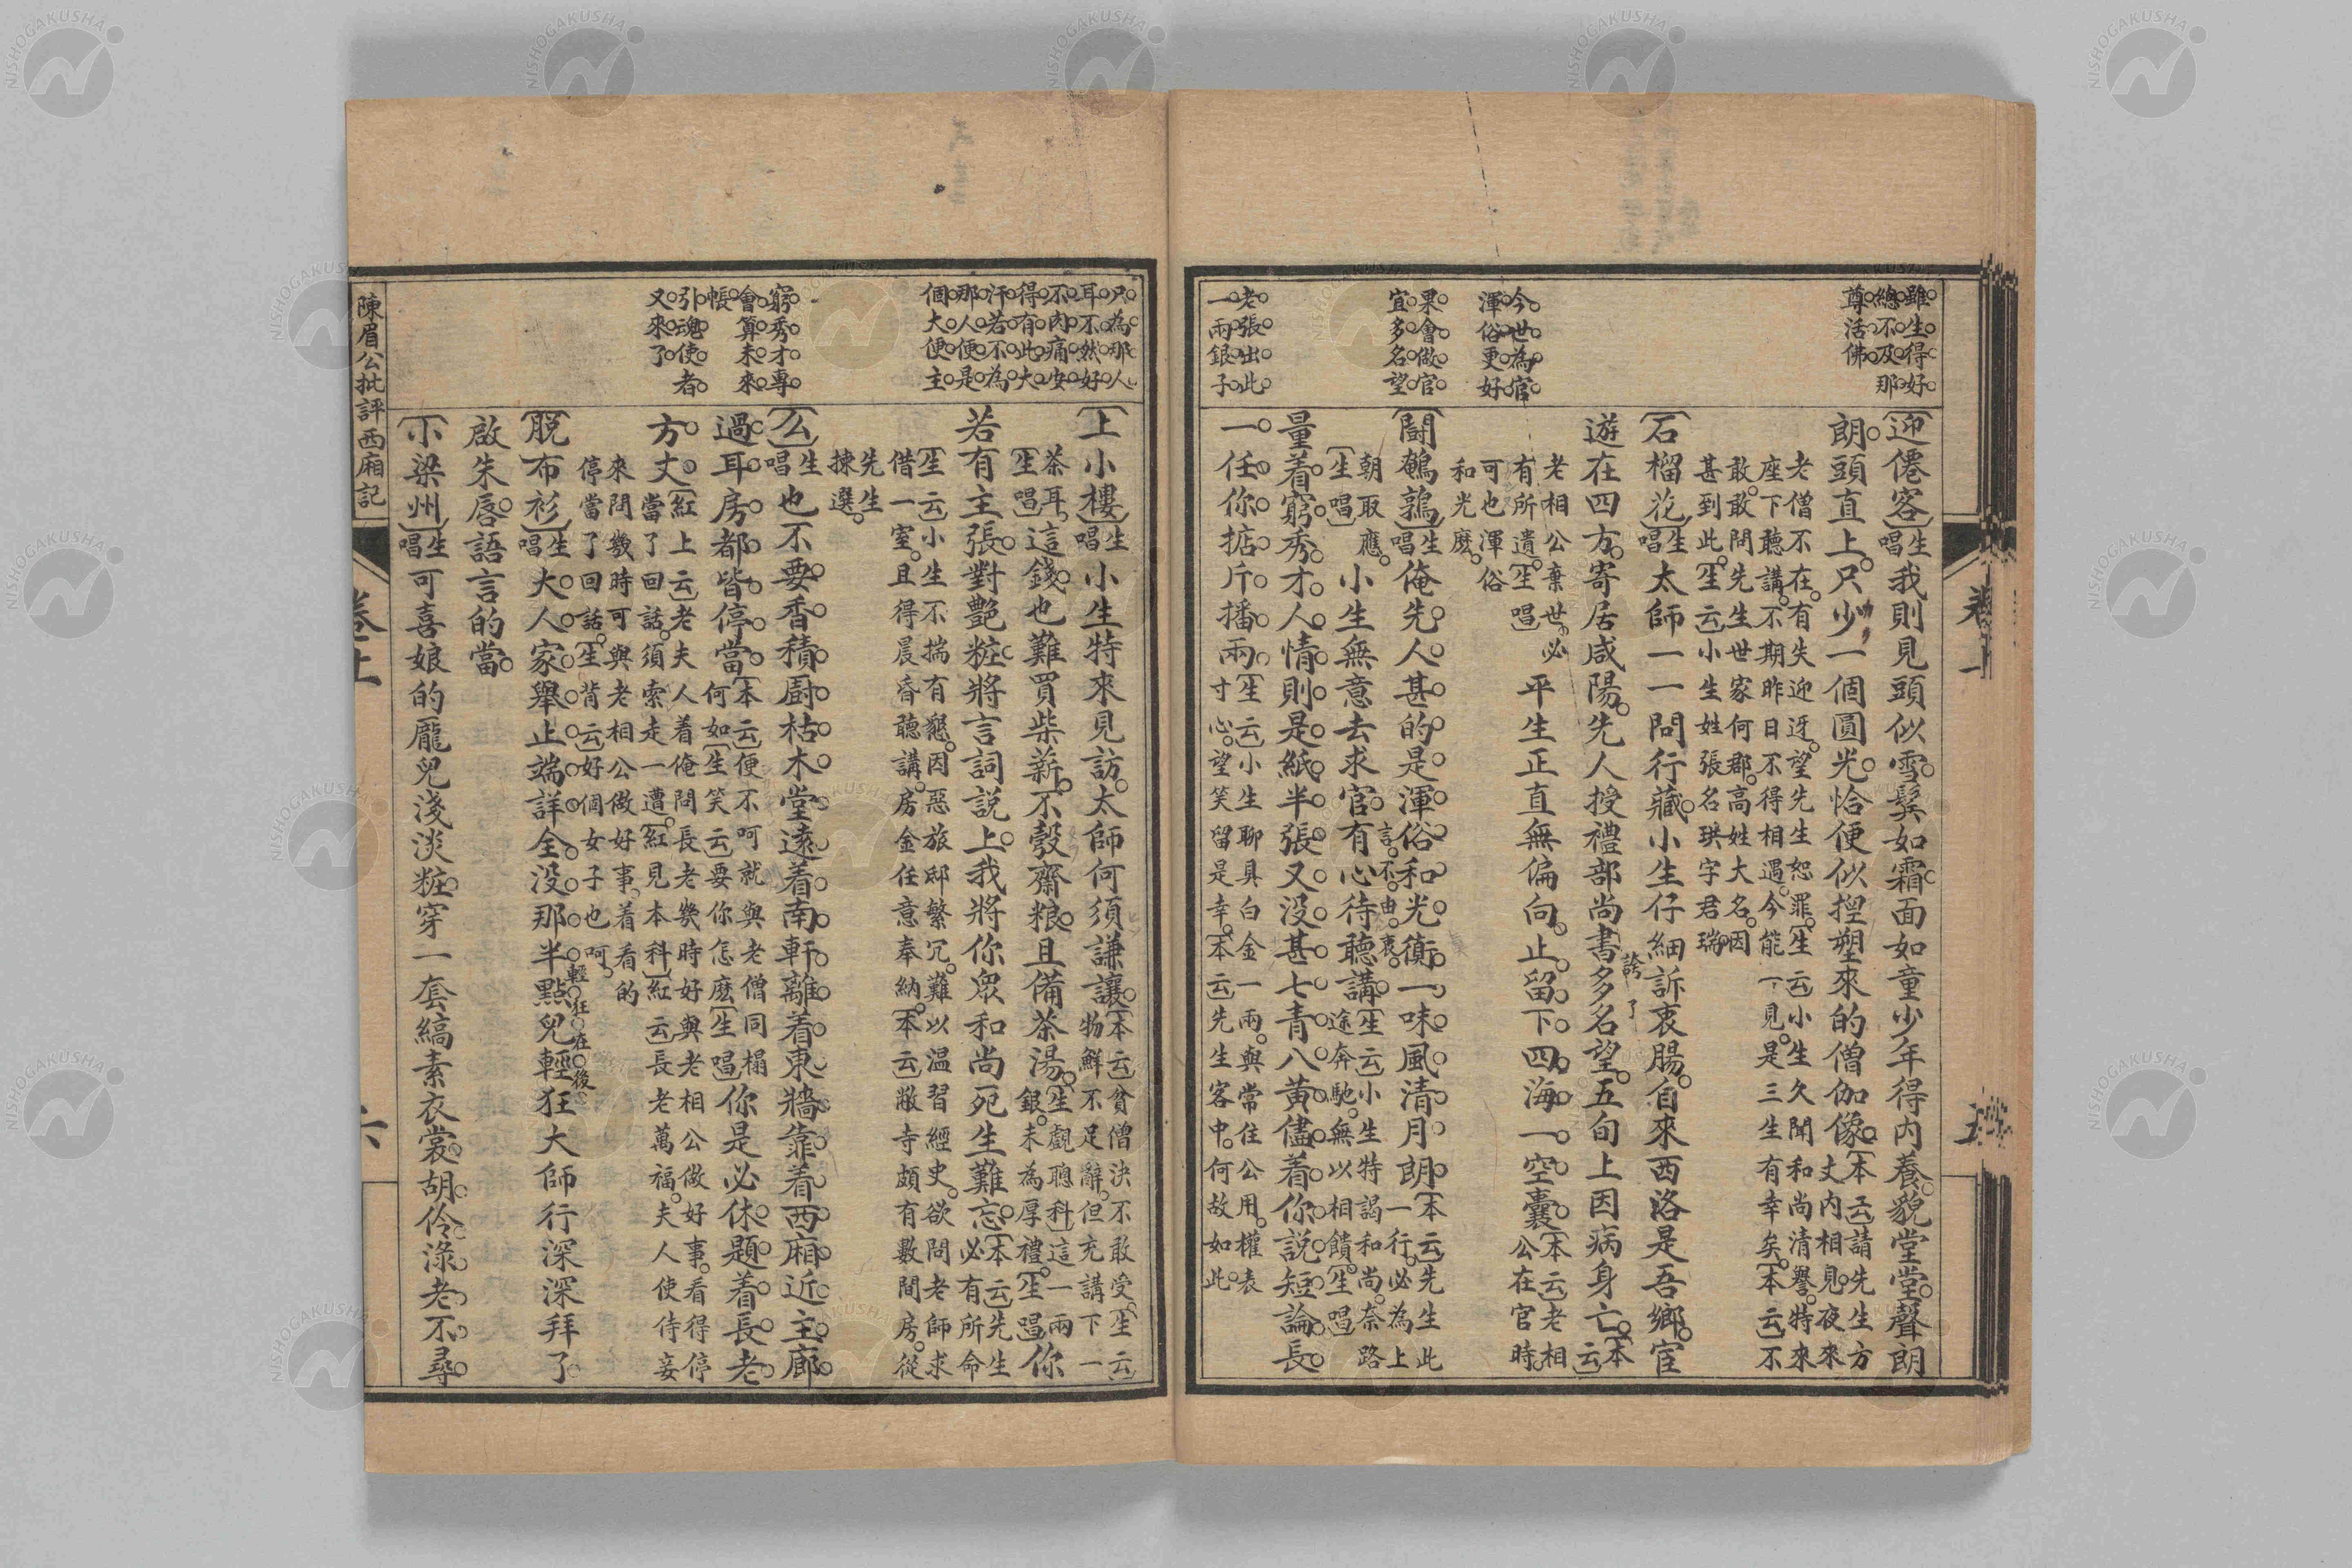 雖生得好
總不及那
尊活佛
今世為官
渾俗更好
果會做官
宜多名望
老張出此
一兩銀子
【迎僊客】生唱我則見頭似雪鬢如霜面如童少年得内養貌堂堂聲朗
朗頭直上只少一個圓光恰便似揑塑來的僧伽像【本云】請先生方
丈内相見夜來
老僧不在有失迎迓望先生恕罪【生云】小生久聞和尚清譽特來
座下聽講不期昨日不得相遇今能一見是三生有幸矣【本云】不
敢敢問先生世家何郡高姓大名因
甚到此【生云】小生姓張名珙字君瑞
【石榴花】生唱太師一一問行藏小生仔細訴衷腸自來西洛是吾鄉宦
遊在四方寄居咸陽先人授禮部尚書多名望五旬上因病身亡【本云】
誇了
老相公棄世必
有所遺【生唱】
平生正直無偏向止留下四海一空囊【本云】老相
公在官時
可也渾俗
和光麽
【鬪鵪鶉】生唱俺先人甚的是渾俗和光衠一味風清月朗【本云】先生此
一行必為上
朝取應
【生唱】
小生無意去求官有心待聽講【生云】小生特謁和尚奈路
途奔馳無以相饋【生唱】
言不由衷
量着窮秀才人情則是紙半張又没甚七青八黃儘着你説短論長
一任你掂斤播兩【生云】小生聊具白金一兩與常住公用權表
寸心望笑留是幸【本云】先生客中何故如此
只為那人
耳不然好
不肉痛安
得有此大
汗若不為
那人便是
個大便主
窮秀才專
會算未來
帳
引魂使者
又來了
【上小樓】生唱小生特來見訪太師何須謙讓【本云】貧僧決不敢受【生云】
物鮮不足辭但充講下一
茶耳
【生唱】
這錢也難買柴薪不彀齋粮且備茶湯【生覷聰科】這一兩
銀未為厚禮【生唱】你
若有主張對艷粧將言詞説上我將你衆和尚死生難忘【本云】先生
必有所命
【生云】小生不揣有懇因惡旅邸繁冗難以温習經史欲問老師求
借一室且得晨昏聽講房金任意奉納【本云】敝寺頗有數間房從
先生
揀選
【么】生唱也不要香積厨枯木堂遠着南軒離着東牆靠着西廂近主廊
過耳房都皆停當【本云】便不呵就與老僧同榻
何如【生笑云】要你怎麽【生唱】你是必休題着長老
方丈【紅上云】老夫人着俺問長老幾時好與老相公做好事看得停
當了回話須索走一遭【紅見本科】【紅云】長老萬福夫人使侍妾
來問幾時可與老相公做好事着看的
停當了回話【生背云】好個女子也呵
【脱布衫】生唱大人家舉止端詳全没那半點兒輕狂大師行深深拜了
輕狂在後
啟朱唇語言的當
【小梁州】生唱可喜娘的龐兒淺淡粧穿一套縞素衣裳胡伶淥老不尋
陳眉公批評西廂記
卷上
六
NISHOGAKUSHA